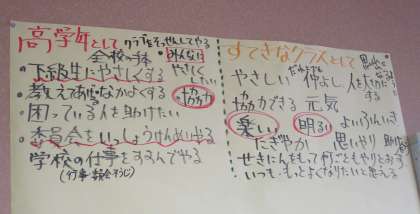 高学年として クラブをそっせんしてやる
全校の手本 みんなに
・下級生にやさしくする やさしく
・教えてあげなかよくする 協力
・困っている人を助けたい
・委員会をいっしょうけんめいやる
学校の仕事をすすんでやる
(行事・諸会そうじ)
すてきなクラスとして
やさしい だれとでも 仲よし 人を大切にする
協力できる 元気
楽しい 明るい よいふんいき
にぎやか 思いやり
せきにんをもって何ごともやりとおす
いつも、もっとよくなりたいと思える